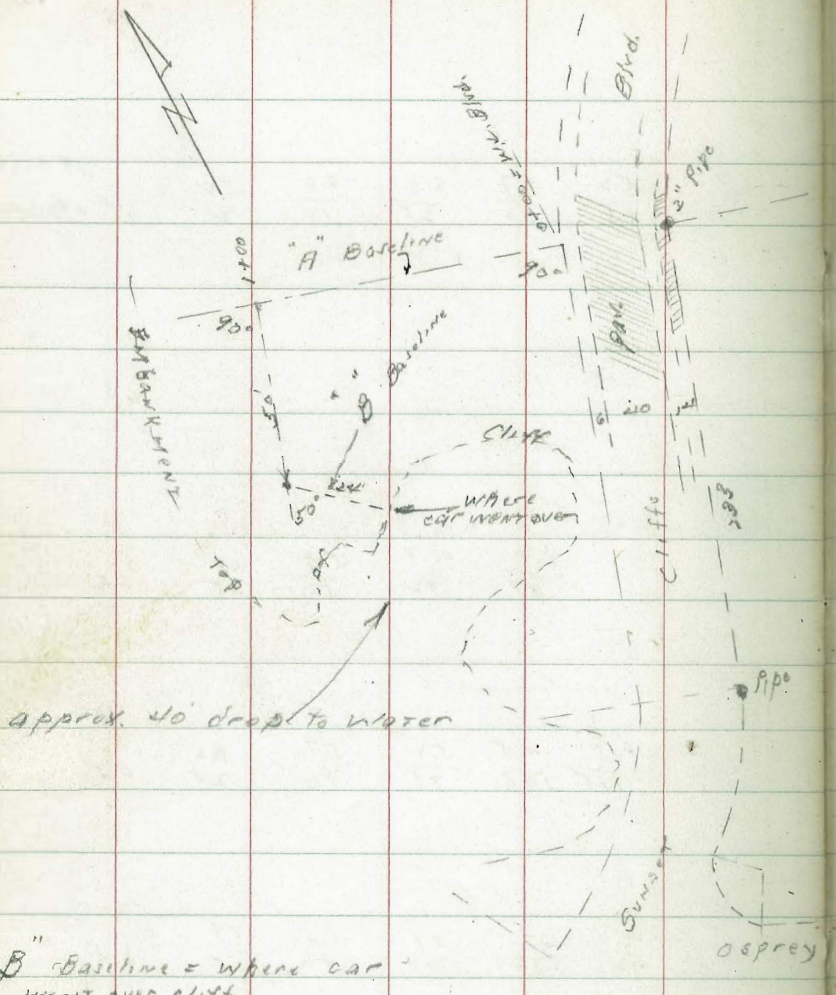 N
Blvd.
2" Pipe
0+00 = W. Blvd.
"A" Baseline
1+00
90°
90°
pav.
Embankment
"B" Baseline
50'
6
40
Cliff
24'
50°
where
car went over
Cliffs
Top
Pipe
approx. 40' drop to water
Sunset
Osprey
B" Baseline = where car
went over cliff